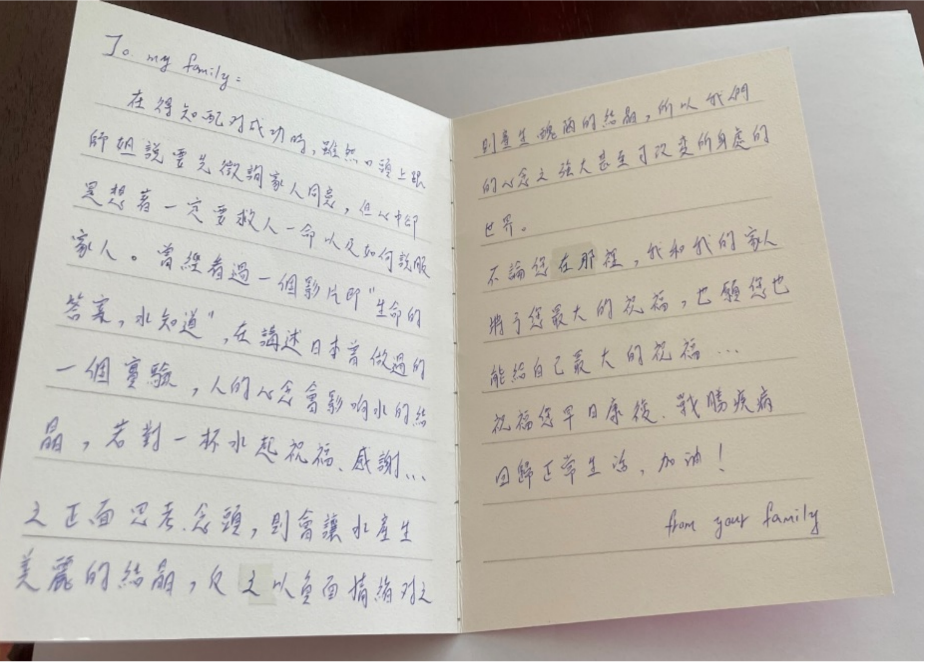 To my family:
在得知配對成功時，雖然口頭上跟
師姐說要先徵詢家人同意，但心中卻
是想著一定要救人一命以及如何說服
家人。曾經看過一個影片即"生命的
答案，水知道"，在講述日本曾做過的
一個實驗，人的心念會影响水的結
晶，若對一杯水起祝福、感謝…
之正面思考、念頭，則會讓水產生
美麗的結晶，反之以負面情緒對之
則產生醜陋的結晶，所以我們
的心念之強大甚至可改變所身處的
世界。
不論您在那裡，我和我的家人
將予您最大的祝福，也願您也
能給自己最大的祝福…
祝福您早日康復、戰勝疾病
回歸正常生活，加油！
from your family